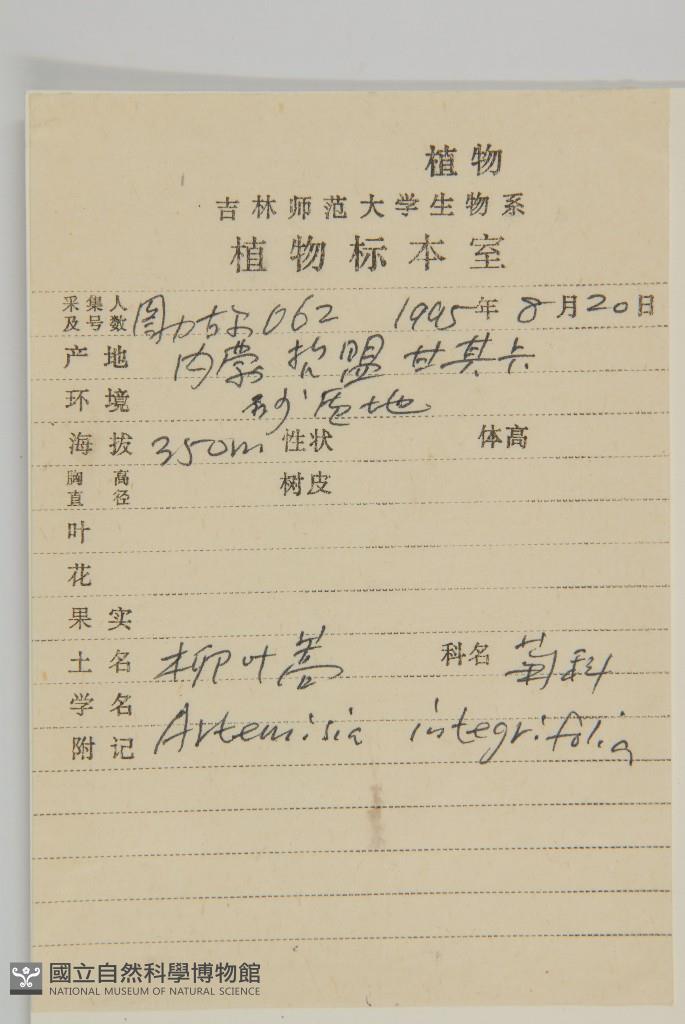 植物
吉林师范大学生物系
植物标本室
采集人及号数 图力古尔 062 1995年8月20日
产地 内蒙 哲盟 甘其卡
环境 沙质地
海拔 350m 性状 体高
胸高直径 树皮
叶
花
果实
土名 柳叶蒿 科名 菊科
学名 Artemisia integrifolia
附记
國立自然科學博物館
NATIONAL MUSEUM OF NATURAL SCIENCE